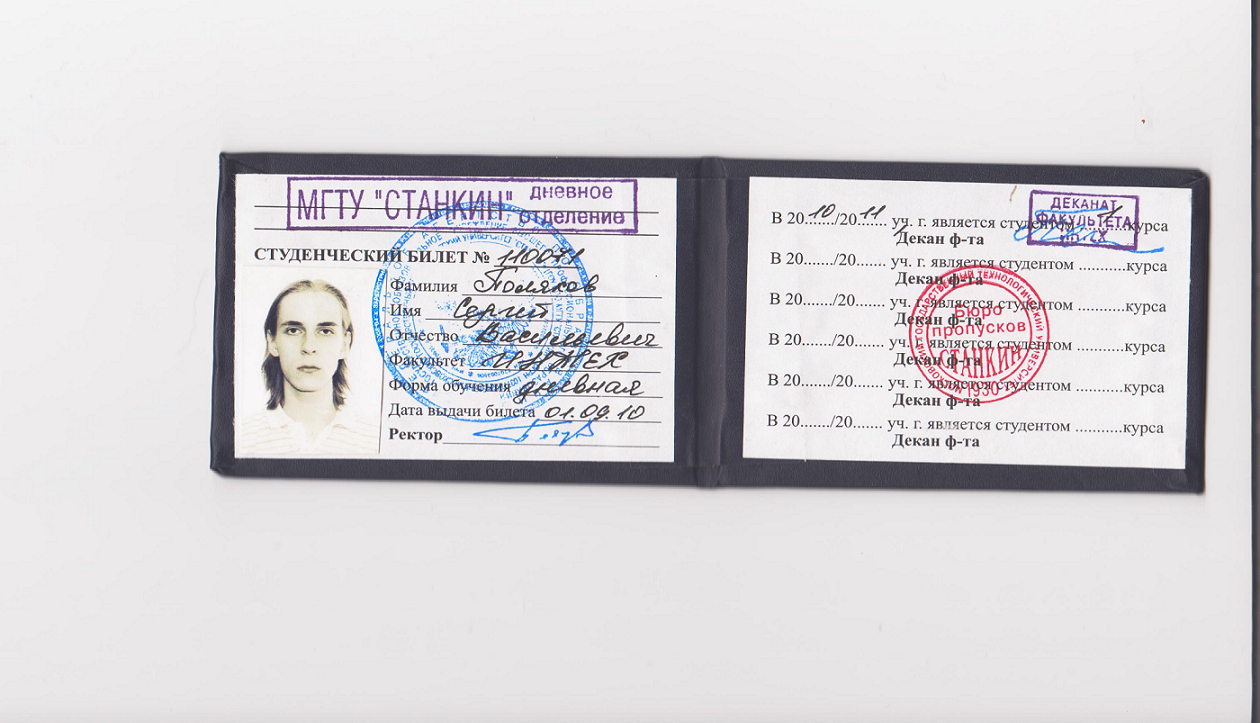 МГТУ "СТАНКИН" дневное отделение
СТУДЕНЧЕСКИЙ БИЛЕТ № 110071
Фамилия Поляков
Имя Сергей
Отчество Васильевич
Факультет ИНТЕХ
Форма обучения дневная
Дата выдачи билета 01.09.10
Ректор
ДЕКАНАТ
ФАКУЛЬТЕТА
В 20.10..../20.11.... уч. г. является студентом ....1....курса
Декан ф-та
В 20......./20....... уч. г. является студентом ...........курса
Декан ф-та
В 20......./20....... уч. г. является студентом ...........курса
Декан ф-та
В 20......./20....... уч. г. является студентом ...........курса
Декан ф-та
В 20......./20....... уч. г. является студентом ...........курса
Декан ф-та
В 20......./20....... уч. г. является студентом ...........курса
Декан ф-та
Бюро
пропусков
СТАНКИН
1930